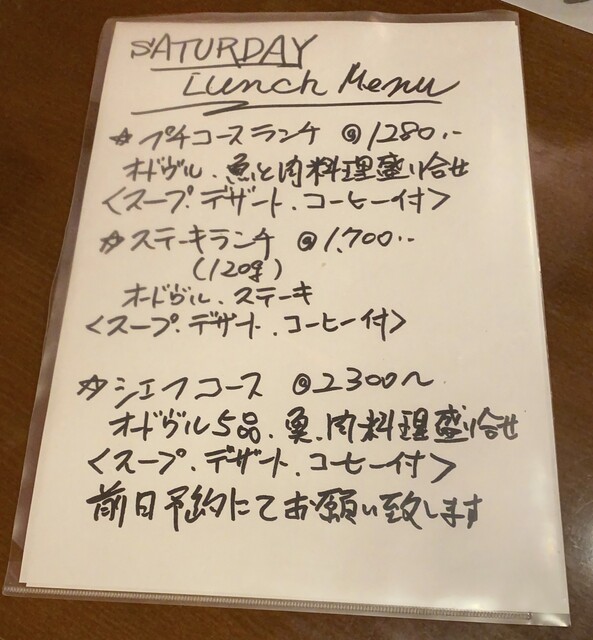 SATURDAY
Lunch Menu
☆プチコースランチ @1280.-
オドヴル.魚と肉料理盛り合せ
<スープ.デザート.コーヒー付>
☆ステーキランチ @1,700.-
(120g)
オードヴル.ステーキ
<スープ.デザート.コーヒー付>
☆シェフコース @2300〜
オドヴル5品.魚.肉料理盛り合せ
<スープ.デザート.コーヒー付>
前日予約にてお願い致します